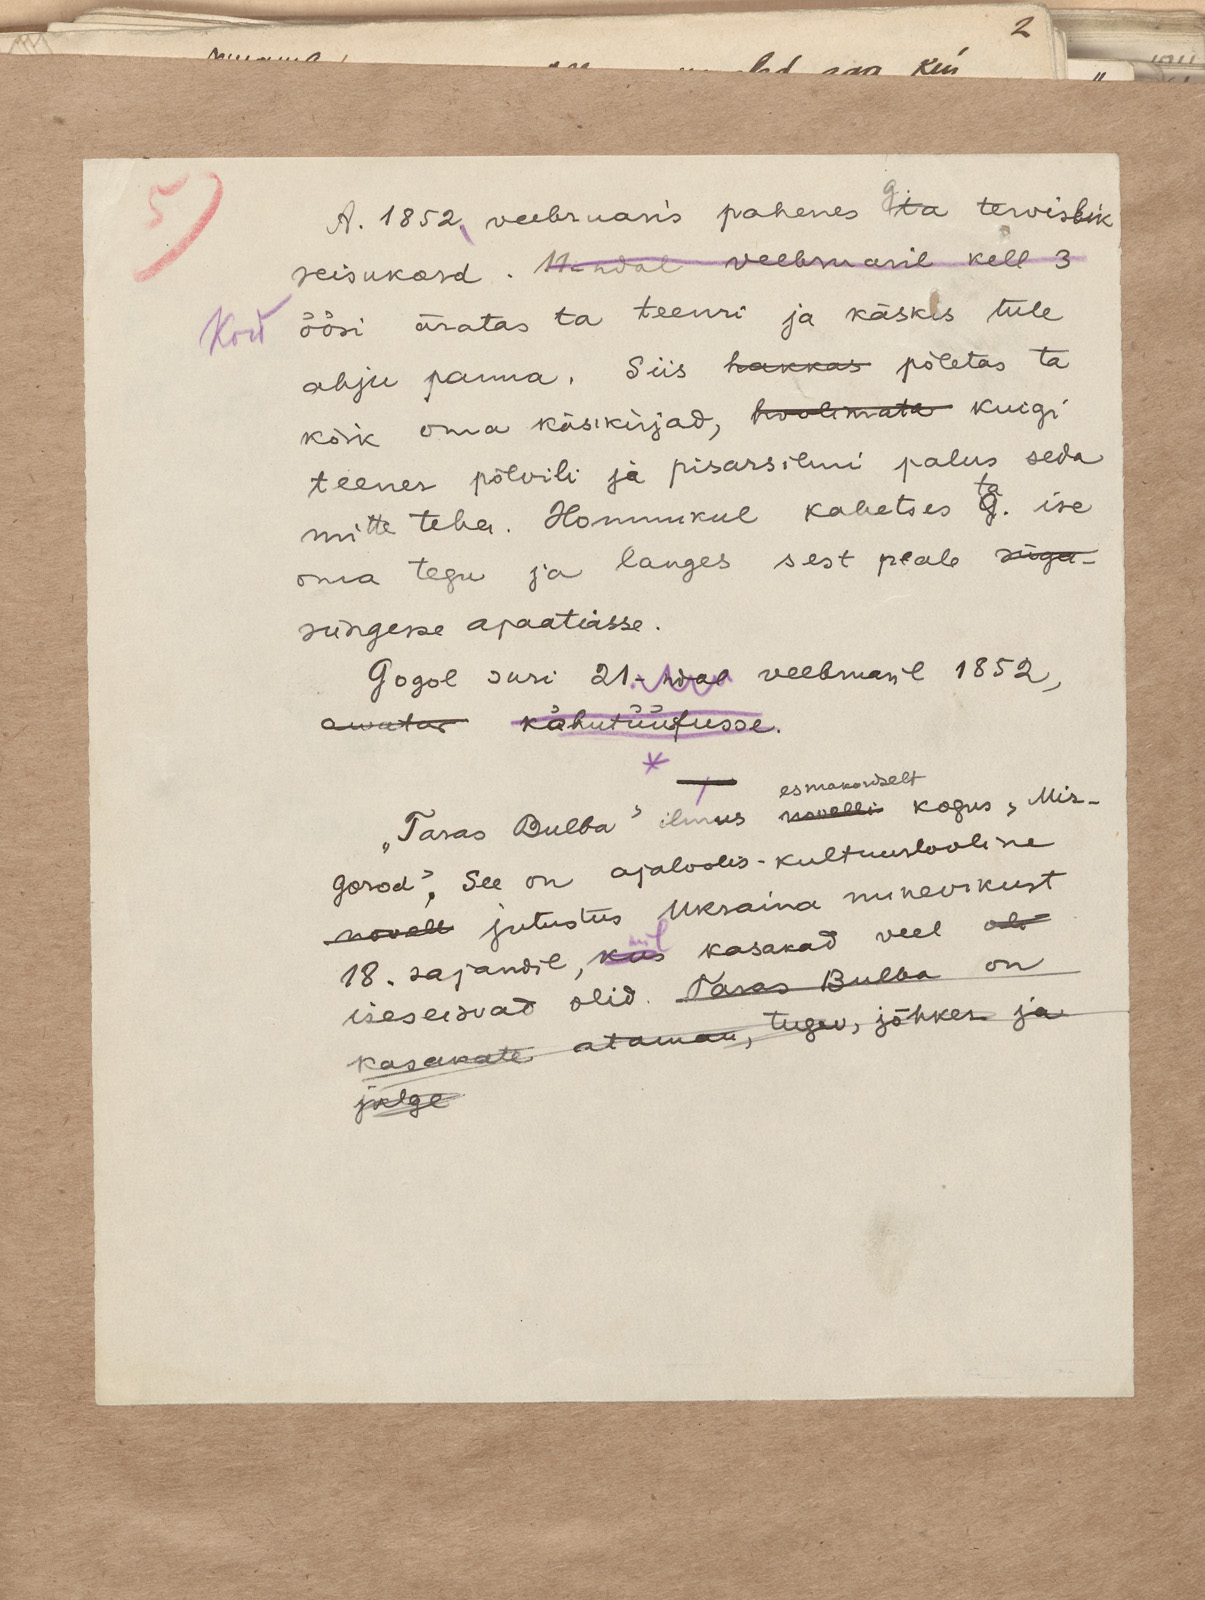 2
5)
A. 1852. veebruaris pahenes G. ta tervislik
seisukord. 11-ndal veebruaril kell 3
Kord öösi äratas ta teenri ja käskis tule
ahju panna. Siis hakkas põletas ta
kõik oma käsikirjad, hoolimata kuigi
teener põlvili ja pisarsilmi palus seda
mitte teha. Hommikul kahetses ta G. ise
oma tegu ja langes sest peale süga-
sügavasse apaatiasse.
Gogol suri 21-ndal veebruaril 1852,
kõhutüüfusse.
*
„Taras Bulba” ilmus novelli esmakordselt kogus „Mir-
gorod”. See on ajaloolis-kultuurlooline
novell jutustus Ukraina minevikust
18. sajandil, kus mil kasakad veel oli
iseseisvad olid. Taras Bulba on
kasakate ataman, tugev, jõhker ja
julge